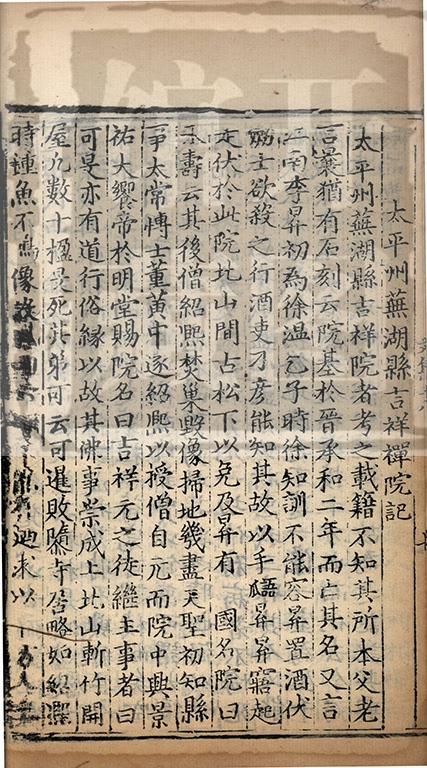 太平州蕪湖縣吉祥禪院記
太平州蕪湖縣吉祥院者考之載籍不知其所本父老
言襄猶有石刻云院基於晉承和二年而亡其名又言
江南李昪初為徐溫乞子時徐知訓不能容昪置酒伏
劒士欲殺之行酒吏刁彥能知其故以手語昪昪寤起
走伏於此院北山間古松下以免及昪有 國名院曰
永壽云其後僧紹熙焚巢毀像掃地幾盡天聖初知縣
事太常博士董黃中逐紹熙以授僧自元而院中興景
祐大饗帝於明堂賜院名曰吉祥元之徒繼主事者曰
可旻亦有道行俗緣以故其佛事崇成上北山斬竹開
屋凡數十楹旻死其弟可云可暹敗隳寺居略如紹熙
時鍾魚不鳴像設